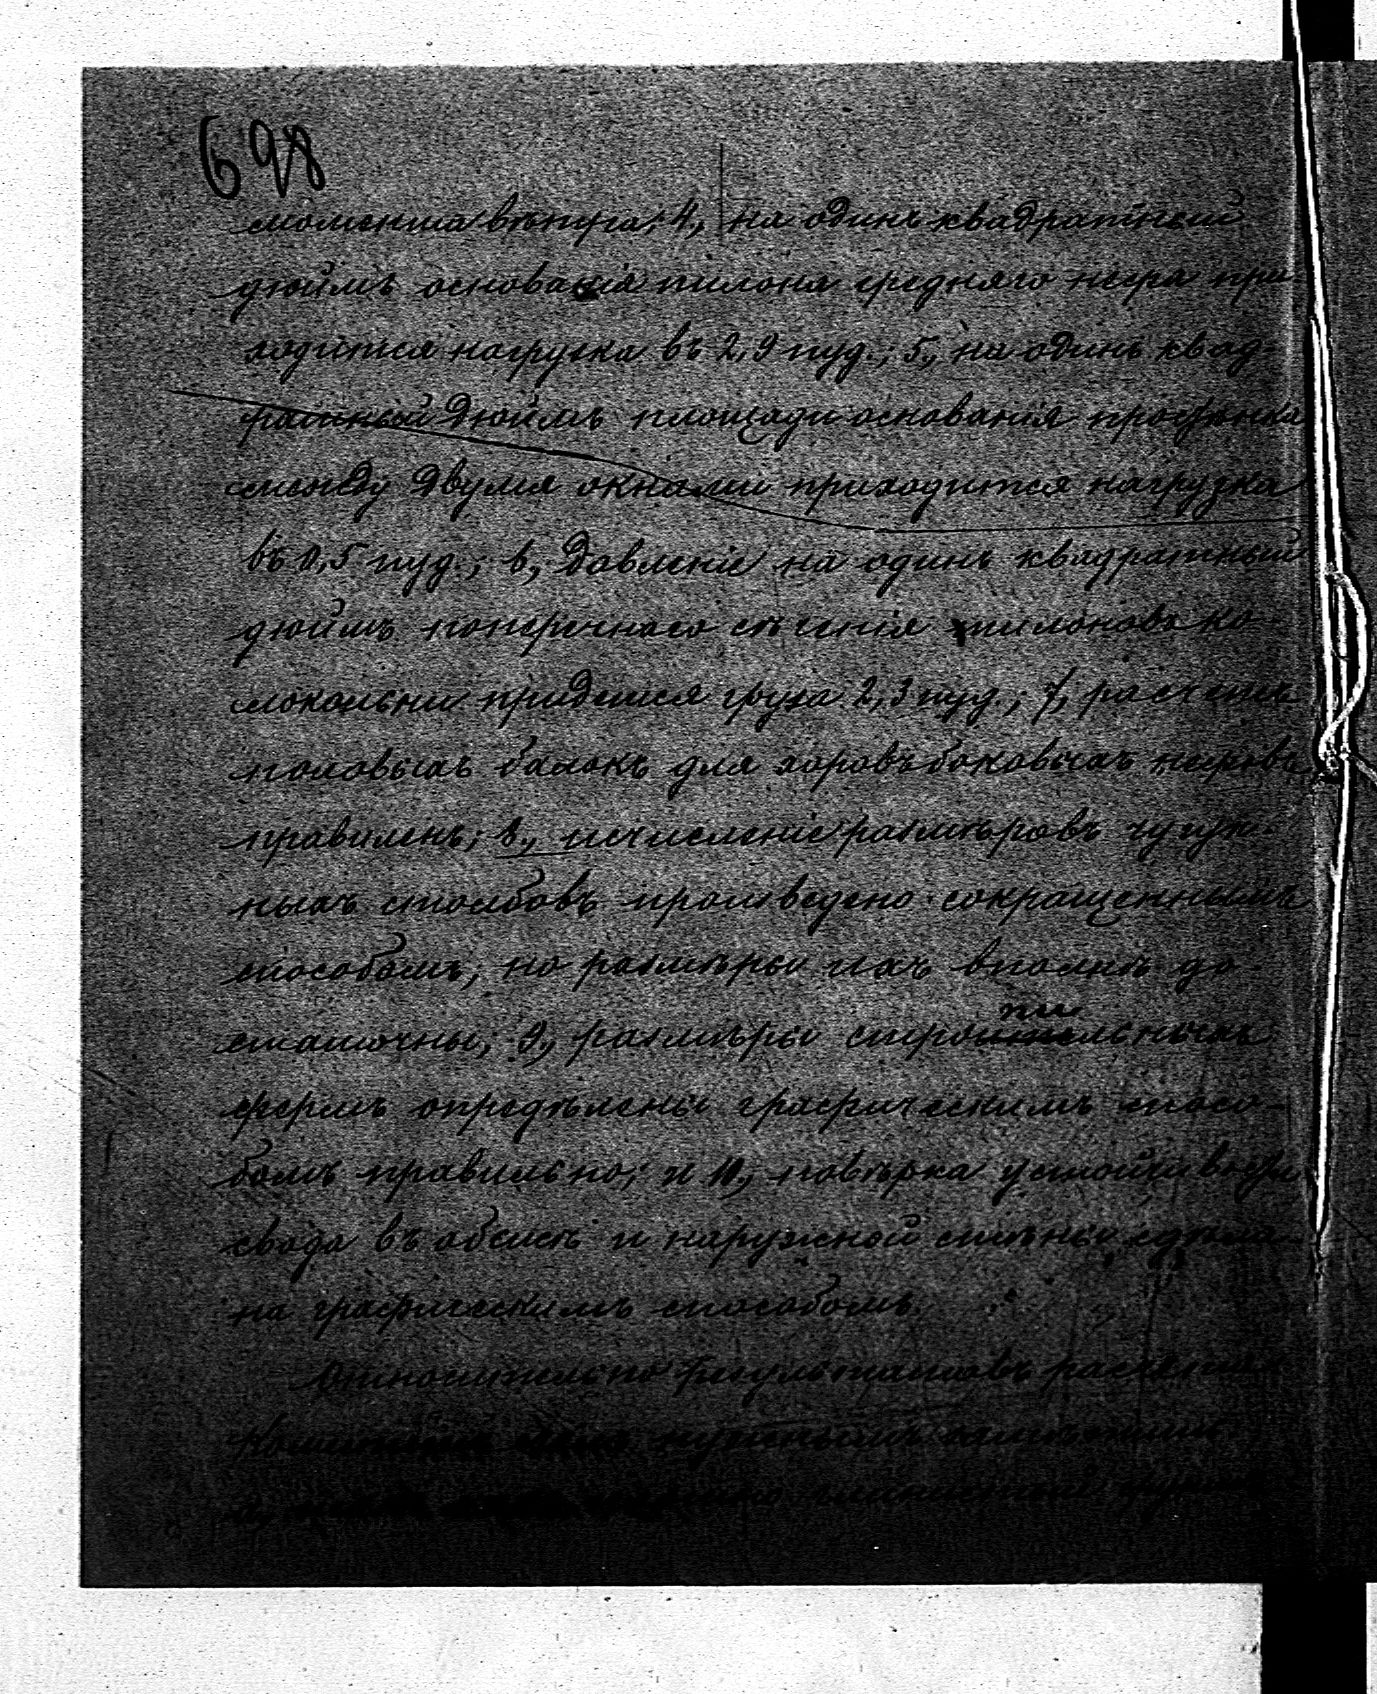 698
момента вѣтра; 4, на одинъ квадратный
дюймъ основанія пилона средняго нефа при
ходится нагрузка въ 2,9 пуд.; 5, на одинъ квад
ратный дюймъ площади основанія простѣнка
между двумя окнами приходится нагрузка
въ 0,5 пуд.; 6, давленіе на одинъ квадратный
дюймъ поперечнаго сѣченія пилоновъ ко-
локольни придется груза 2,3 пуд.; 7, расчетъ
половыхъ балокъ для хоровъ боковыхъ нефовъ
правиленъ; 8, исчисленіе размѣровъ чугун-
ныхъ столбовъ произведено сокращеннымъ
способомъ, но размѣры ихъ вполнѣ до
статочны; 9, размѣры стропильныхъ
фермъ опредѣлены графическимъ спосо-
бомъ правильно; и 10, повѣрка устойчивости
свода въ абсидѣ и наружной стѣны сдѣла
на графическимъ способомъ.
Относительно результатовъ